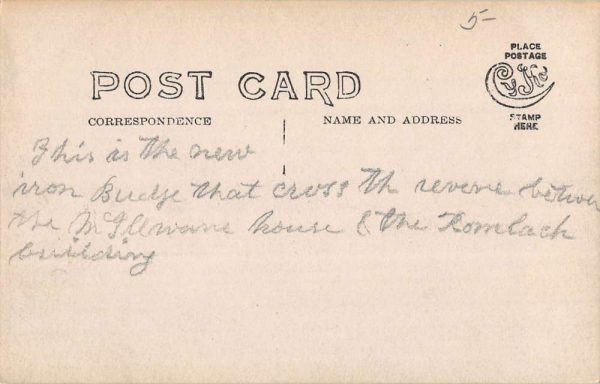 5-
PLACE
POSTAGE
CYKO
STAMP
HERE
POST CARD
CORRESPONDENCE
NAME AND ADDRESS
This is the new
iron Budge that cross th revene betwen
the McIlwane house & the Romback
building